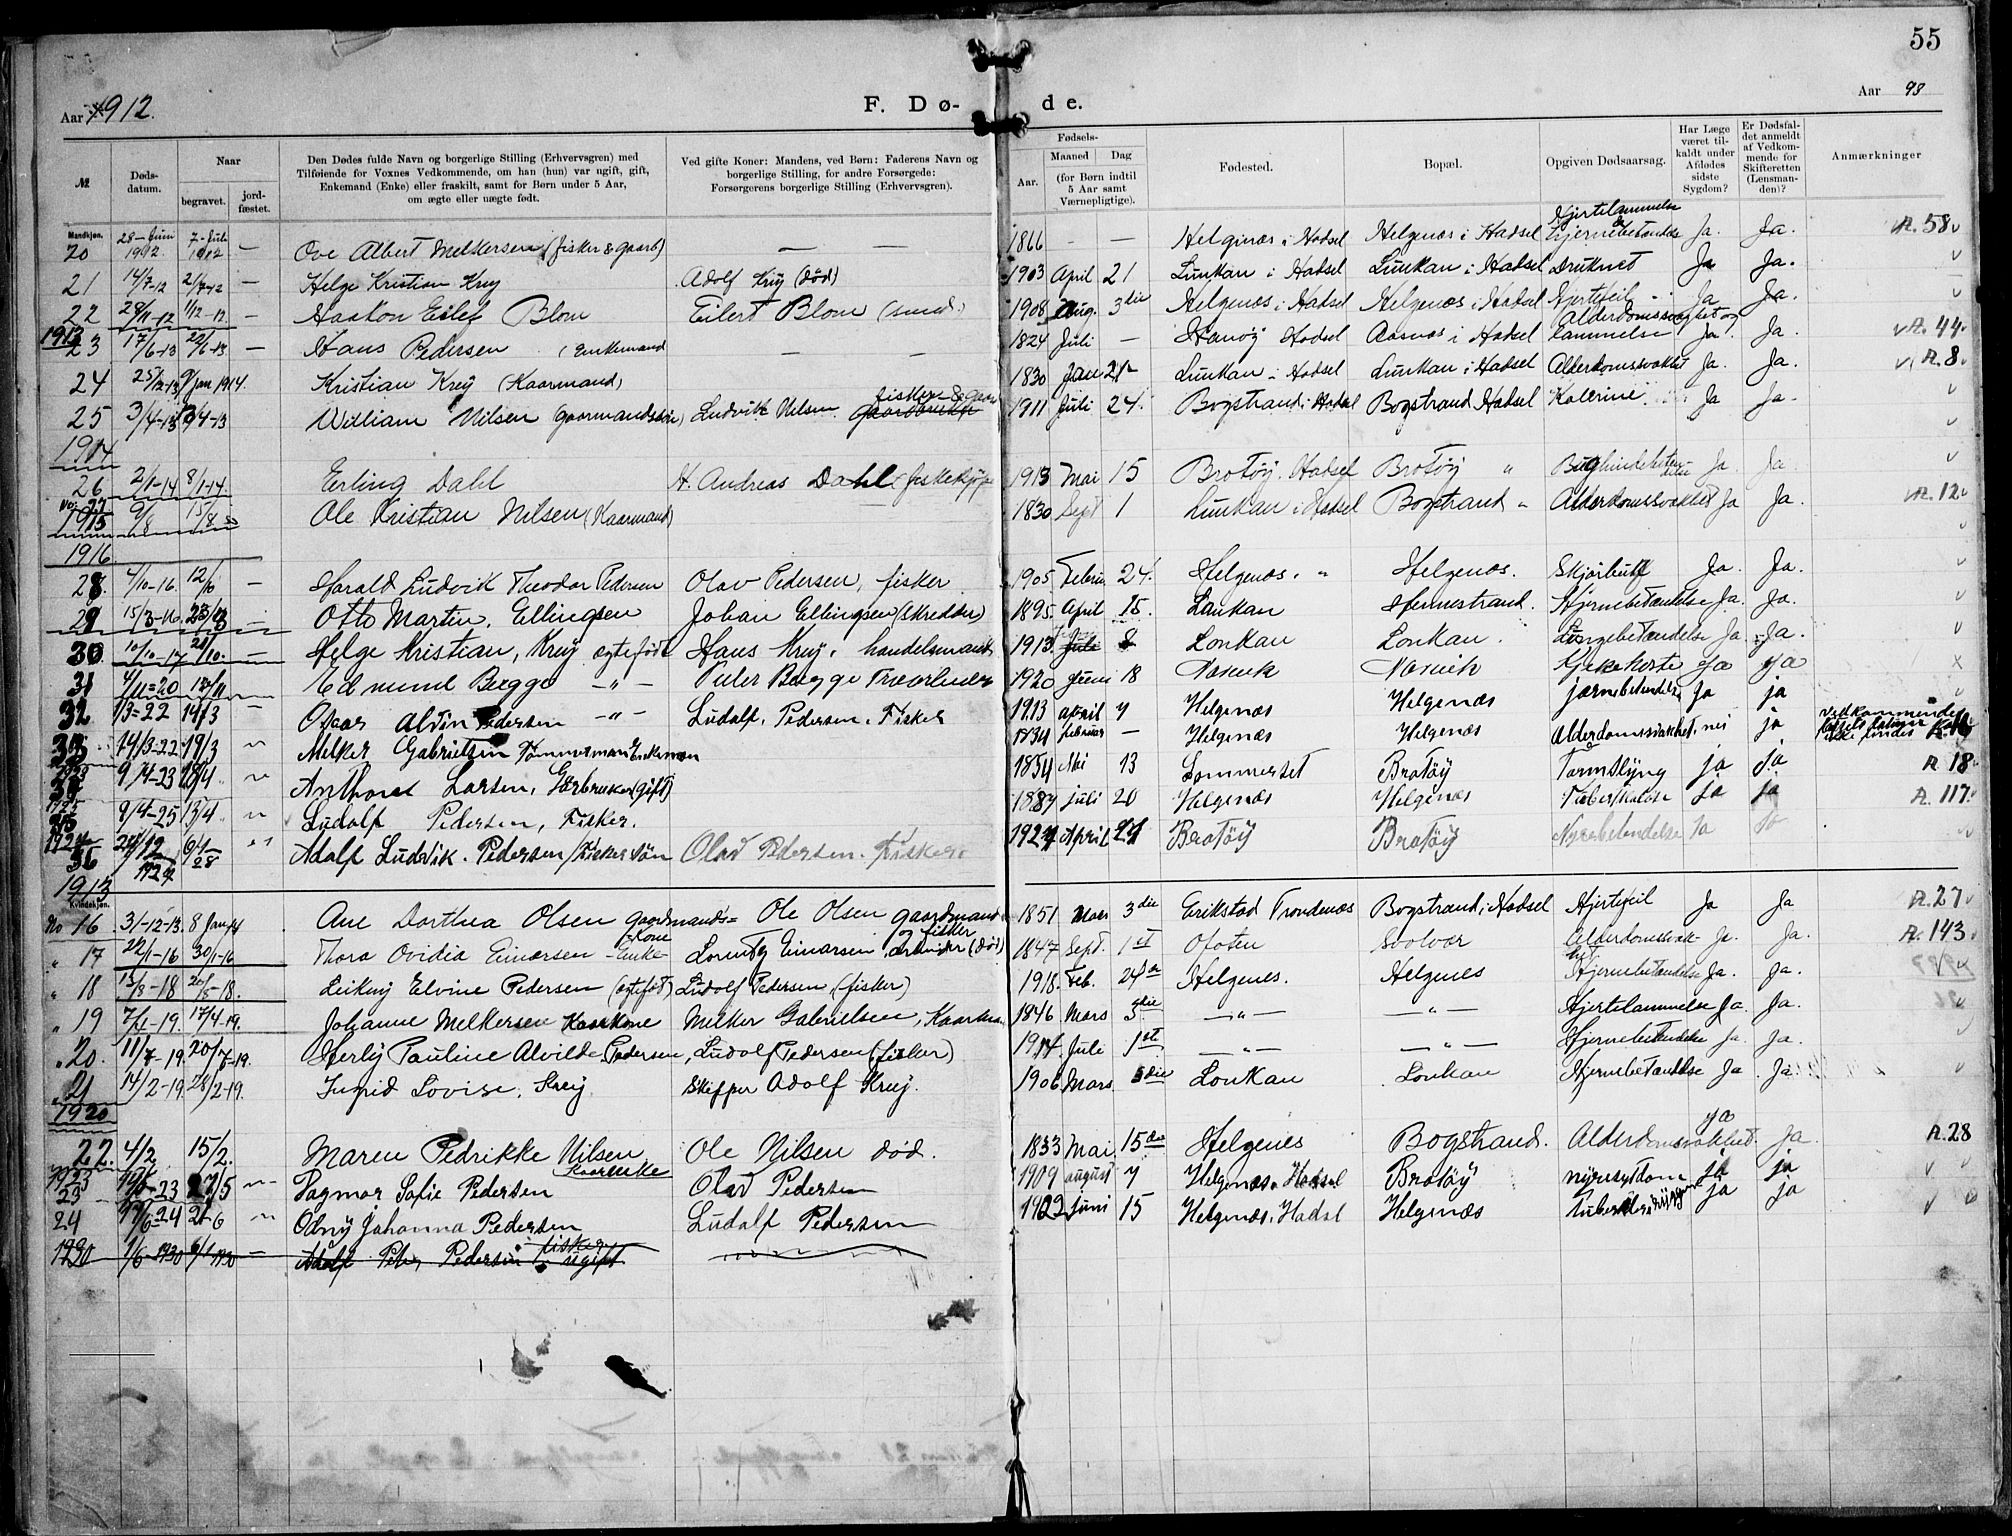 55
Aar 1912.
F. Dø-
de.
Aar 98
№
Døds-datum.
Naar
begravet.
jord-fæstet.
Den Dødes fulde Navn og borgerlige Stilling (Erhvervsgren) med Tilføiende for Voxnes Vedkommende, om han (hun) var ugift, gift, Enkemand (Enke) eller fraskilt, samt for Børn under 5 Aar, om ægte eller uægte født.
Ved gifte Koner: Mandens, ved Børn: Faderens Navn og borgerlige Stilling, for andre Forsørgede: Forsørgerens borgerlige Stilling (Erhvervsgren).
Fødsels-
Aar.
Maaned
Dag
(for Børn indtil 5 Aar samt Værnepligtige).
Fødested.
Bopæl.
Opgiven Dødsaarsag.
Har Læge været tilkaldt under Afdødes sidste Sygdom?
Er Dødsfaldet anmeldt af Vedkommende for Skifteretten (Lensmanden)?
Anmærkninger
Mandkjøn.
20 28-Juni 1912 7-Juli 1912 — Ove Albert Melkersen (fisker & gaarb) — — 1866 - — Helgenæs i Hadsel Helgenæs i Hadsel Hjertelammelse & Hjernebetændelse Ja. Ja. A. 58
21 14/7-12 21/7-12 — Helge Kristian Krey Adolf Krey (død) 1903 April 21 Lunkan i Hadsel Lunkan i Hadsel Druknet Ja Ja.
22 28/11-12 1/12-12 — Haakon Eilef Blom Eilert Blom (smed) 1908 Aug. 3die Helgenæs i Hadsel Helgenæs i Hadsel Hjertefeil Ja Ja.
1913
23 17/6-13 22/6-13 — Hans Pedersen (Enkemand — — 1824 Juli — Hanøy Hadsel Aasnæs i Hadsel Alderdomssvaghet og Lammelse Ja. Ja. A. 44.
24 25/12-13 9 Jan 1914. Kristian Krey (Kaarmand) 1830 Jan 21 Lunkan i Hadsel Lunkan i Hadsel Alderdomssvakhet Ja. Ja. A. 8.
25 3/4-13 13/4-13 William Nilsen (gaarmandssøn) Ludvik Nilsen fisker & gaar 1911 Juli 24. Bogstrand i Hadsel Bogstrand Hadsel Kolerine Ja Ja.
1914
26 2/1-14 8/1-14. Erling Dahl H. Andreas Dahl. fiskekjøper 1913 Mai 15 Brotøy. Hadsel Brotøy " Bughindebetændelse Ja. Ja.
No: 27 1915 9/8 15/8 Ole Kristian Nilsen (Kaarmand) 1830 Sept 1 Lunkan i Hadsel Bogstrand " Alderdomssvakhet Ja Ja. A. 12
1916
28. 4/10-16. 12/10 — Harald Ludvik Theodor Pedersen Olav Pedersen, fisker 1905. Februar 24. Helgenæs. " Helgenæs. Skjørbug Ja. Ja.
29 15/3-16. 23/3 — Otto Martin. Ellingsen Johan Ellingsen (skredder) 1895. April 15. Lankan Hennestrand. Hjernebetændelse Ja. Ja.
30 10/10-17 20/10. — Helge Kristian, Krey ægtefødt Hans Krey. handelsmand 1913. Juli 8 Lonkan Lonkan. Lungebetændelse Ja. Ja.
31 4/11=20 14/11 Edmund Bugge —"— Peter Bugge Trævarbeider 1920 Juni 18 Narvik Narvik Kikehoste Ja Ja x
32 1/3=22 14/3 Oskar Alvin Pedersen —"— Ludolf. Pedersen. Fisker 1913 april 4 Helgenæs Helgenæs jærnebetendelse Ja ja
33 14/3-22 19/3 " Melker Gabrielsen Tømmermand Enkeman 1834 februar — Helgenæs Helgenæs Alderdomssvakhet. nei ja
1923 34 9/4-23 18/4 " Anthone Larsen, Gårbruker (gift) 1854 Mai 13 Sommerset Brotøy Tarmslyng ja ja A 18
1925 35 9/4-25 13/4 " Ludolf Pedersen, Fisker. 1887 juli 20 Helgenæs Helgenæs Tuberkulose ja ja A. 117.
1927 36 28/12 1927 6/1 28 " Adolf Ludvik. Pedersen / Fiskersøn Olav Pedersen. Fisker. 1927 April 24 Brotøy Brotøy Nyrebetendelse Ja Ja
1913
Kvindekjøn.
No 16 31-12-13. 8 Jan 14 Ane Dorthea Olsen gaardmands= kone Ole Olsen gaardmand og fisker 1851 Mars 3die Erikstad Trondenæs Bogstrand i Hadsel Hjertefeil Ja Ja A. 27
" 17 22/1-16 30/1-16 Thora Ovidia Einarsen Enke Lorentz Einarsen, arbeider (død) 1847 Sept. 1st Ofoten Svolvær Alderdomssvakhet Ja. Ja. A. 143.
" 18 13/8-18 20/8-18. Leikny Elvine Pedersen (ægtefødt) Ludolf Pedersen, (fisker) 1918. Feb. 24de Helgenes. Helgenes Hjernebetændelse Ja. Ja.
" 19 7/4-19. 17/4-19. Johanne Melkersen Kaarkone Melker Gabrielsen, Kaarman. 1846 Mars 5die —"— —"— Hjertelammelse Ja. Ja.
" 20. 11/7-19. 20/7-19. Herly Pauline Alvilde Pedersen, Ludolf Pedersen (fisker) 1914. Juli 1st —"— —"— Hjernebetændelse Ja Ja.
" 21 14/2-19. 28/2-19. Ingrid Lovise. Krey. Skipper Adolf Krey. 1906 Mars 5die Lonkan Lonkan Hjernebetændelse Ja. Ja.
1920
22. 4/2 15/2. Maren Pedrikke Nilsen Kaarenke Ole Nilsen død. 1833 Mai 15de Helgenes Bogstrand. Alderdomsvakhet. Ja Ja. A. 28
1923
23 -23 27/5 " Dagmar Sofie Pedersen Olav Pedersen 1909 august 4 Helgenæs. Hadsel Brotøy nyresykdom ja ja
24 -24 21-6 " Odny Johanna Pedersen Ludolf Pedersen 1922 juni 15 Helgenæs. Hadsel Helgenæs ja ja
1930 1/6 1930 6/1 1930 — Adolf Peter Pedersen fisker ugift